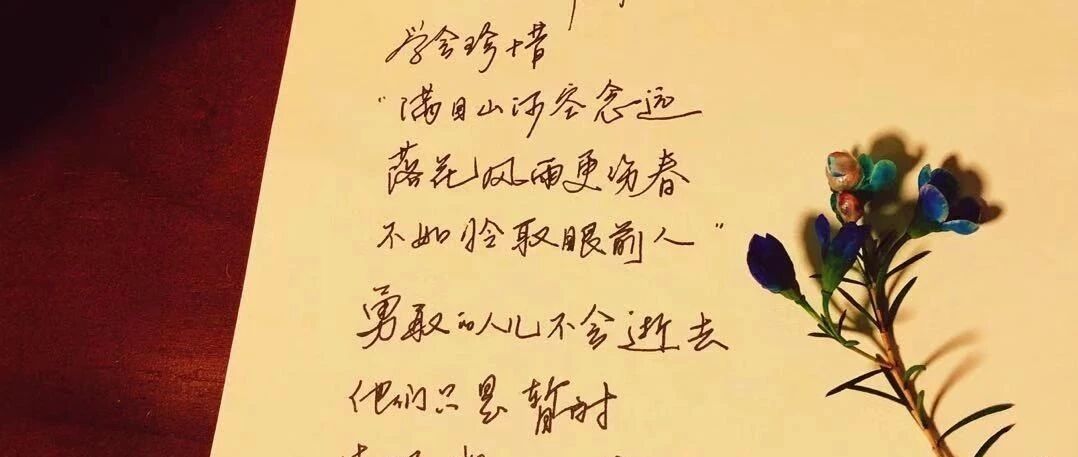 学会珍惜
“满目山河空念远
落花风雨更伤春
不如怜取眼前人”
勇敢的人儿不会逝去
他们只是暂时